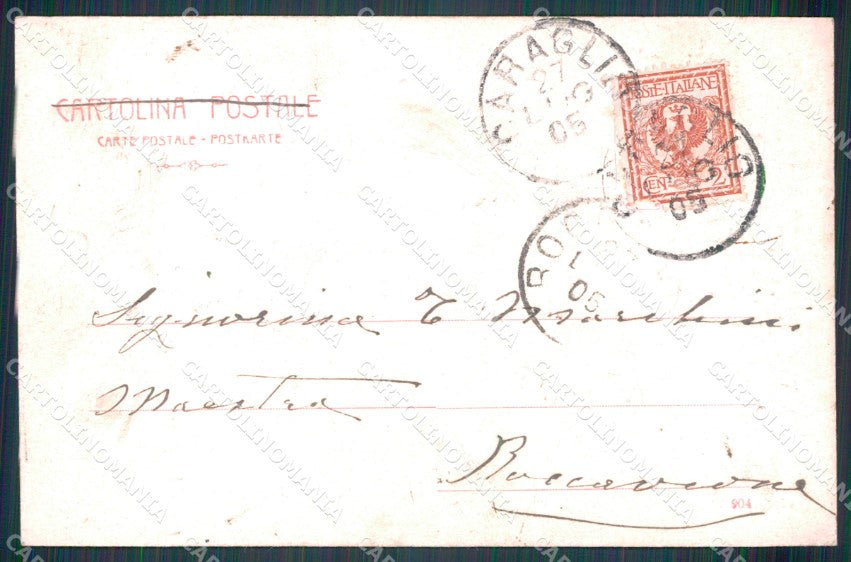 CARTOLINA POSTALE
CARTE POSTALE - POSTKARTE
CARAGLIO
27
LUG
05
POSTE·ITALIANE
CENT 2
05
ROC
L
05
Signorina E Marchini
Maestra
Roccavione
904
CARTOLINOMANIA